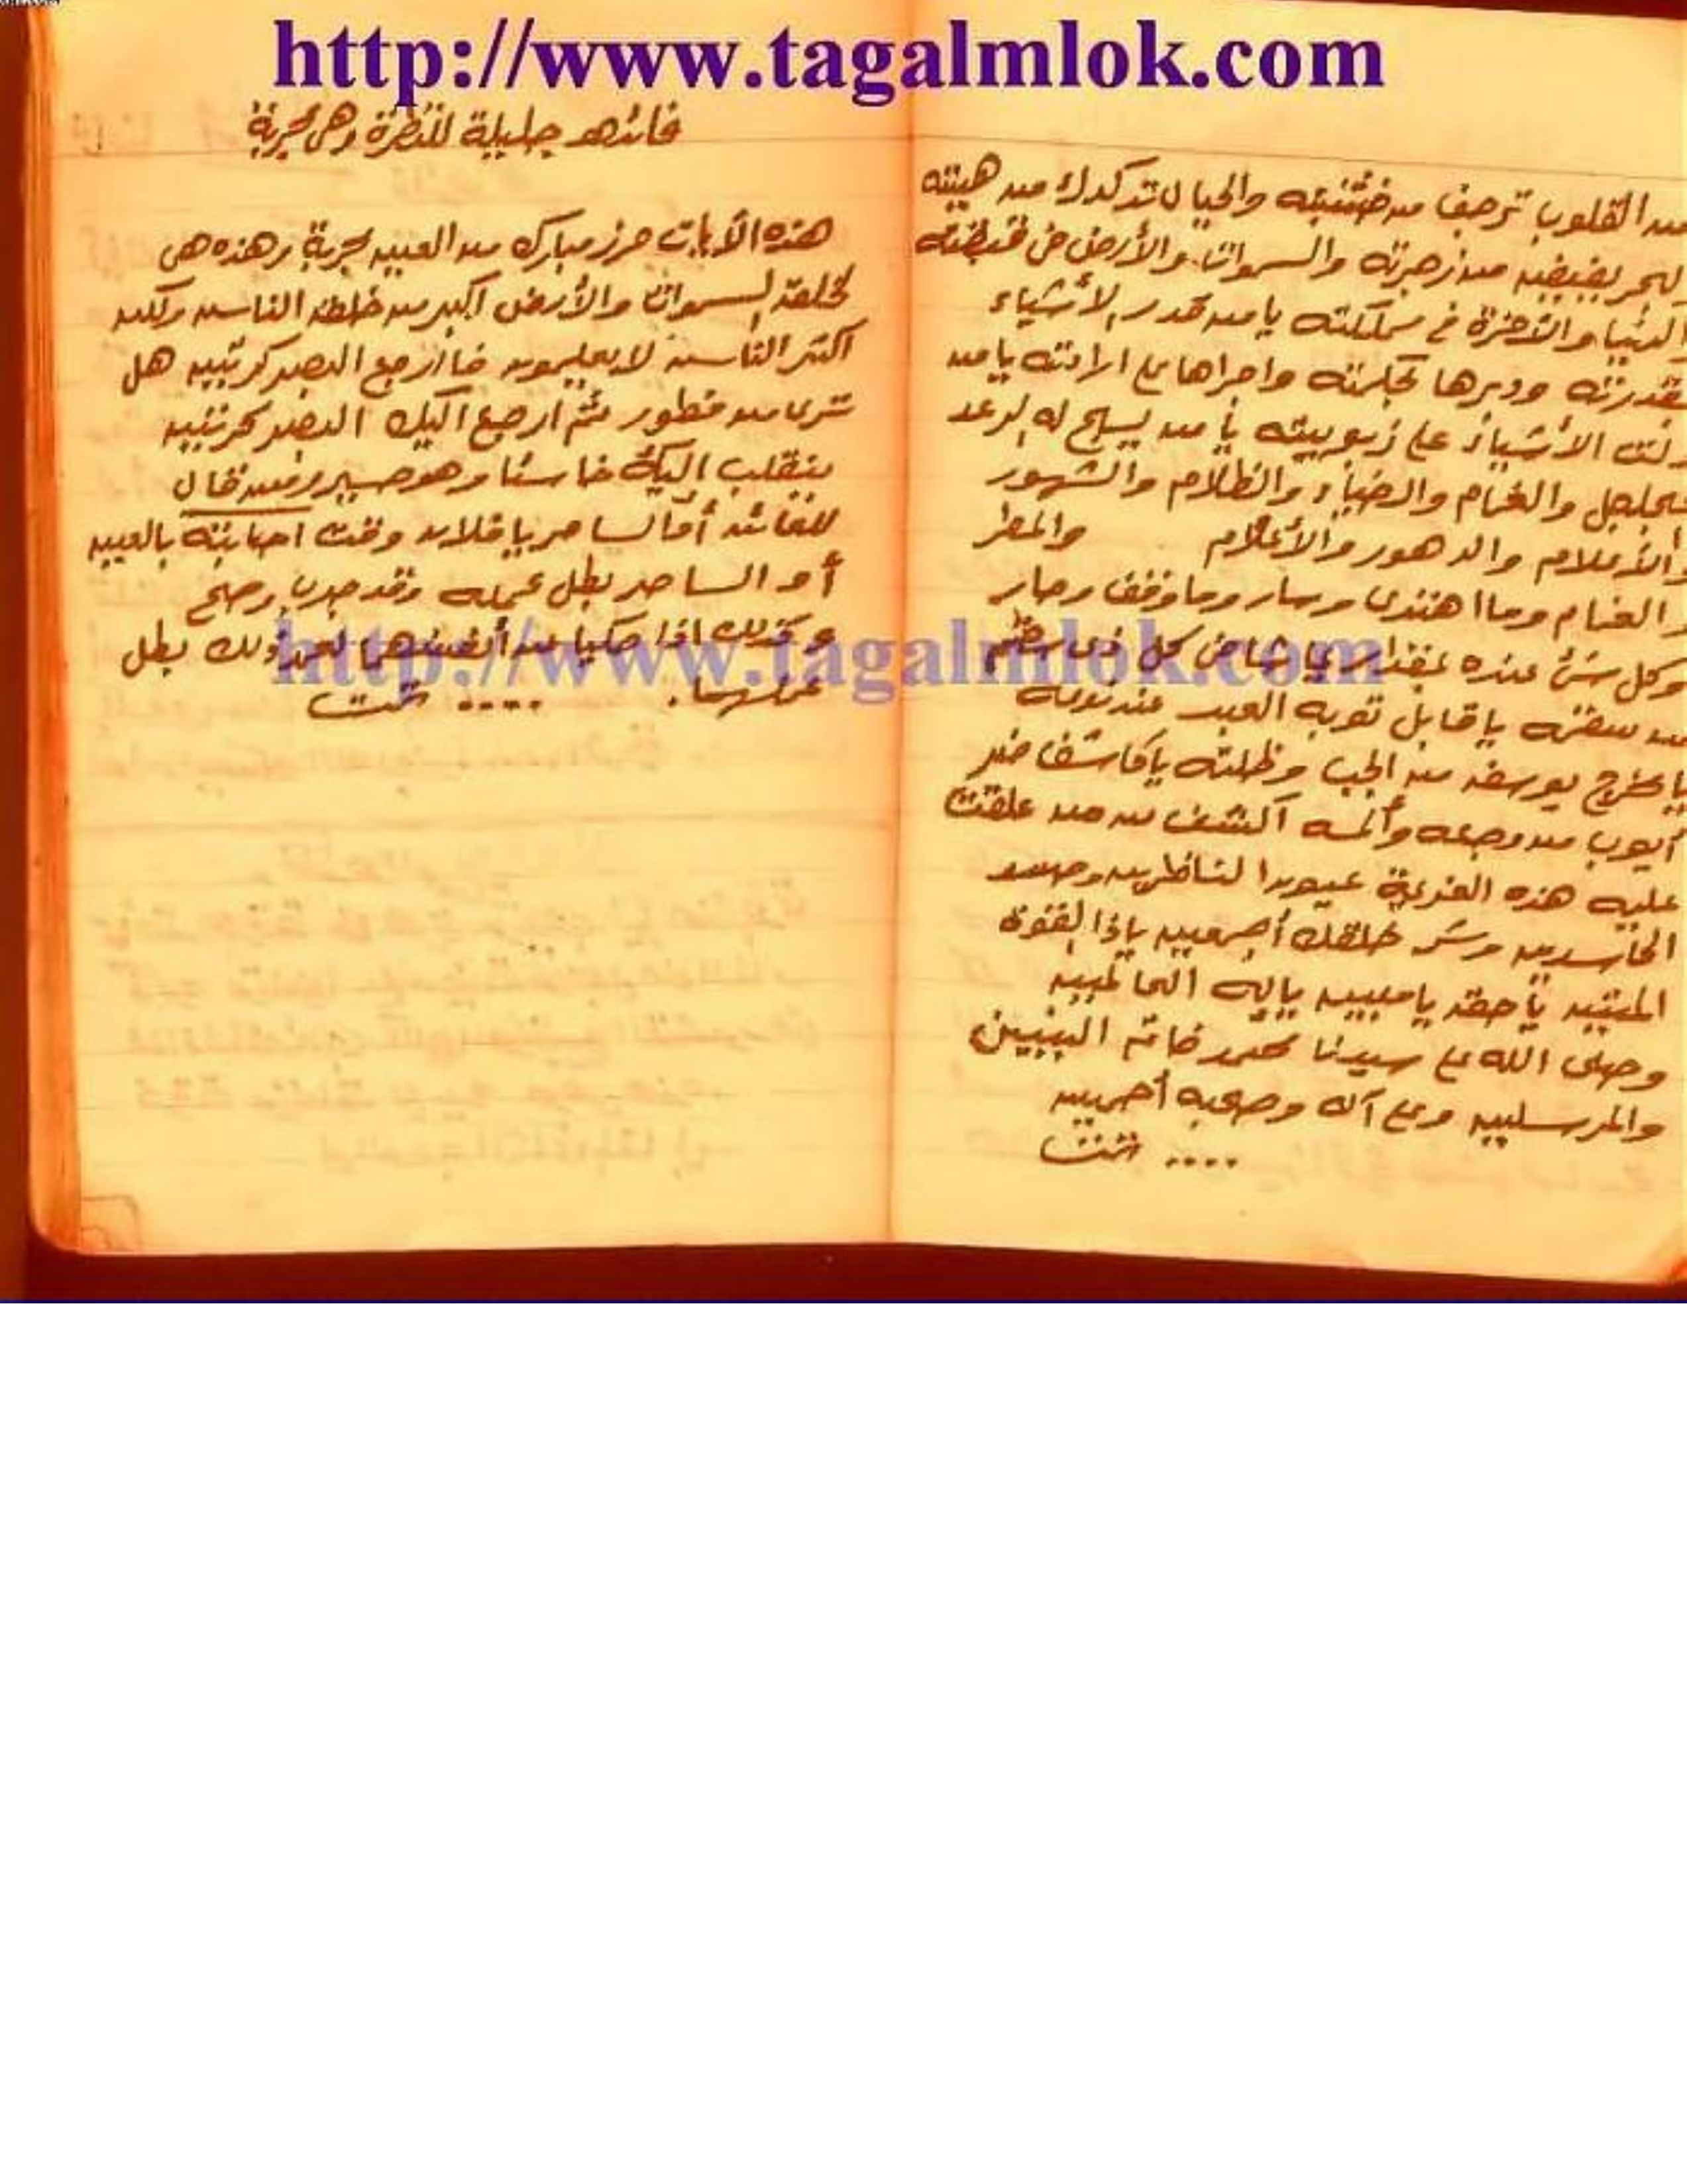 http://www.tagalmlok.com
من القلوب ترجف من خشيته والجبال تدكدك من هيبته
البحر يفيض من زجرته والسموات والأرض في قبضته
الدنيا والآخرة في مملكته يا من قدر الأشياء
بقدرته ودبرها بحكمته واجراها على ارادته يا من
دلت الأشياء على ربوبيته يا من يسبح له الرعد
والغمام والضياء والظلام والشهور
والأعلام والدهور والأعلام والمطر
والغمام وما اهتدى وسار وما وقف وحار
وكل شئ عنده بمقدار يا شافي كل ذي سقم
من سقمه يا قابل توبة العبد عند توبته
يا مخرج يوسف من الجب وظلمته يا كاشف ضر
أيوب من وجعه وألمه اكشف عن من علقت
عليه هذه العزيمة عيون الناظرين وحسد
الحاسدين وشر خلقك أجمعين ياذا القوة
المتين يا حق يا مبين يا إله العالمين
وصلى الله على سيدنا محمد خاتم النبيين
والمرسلين وعلى آله وصحبه أجمعين
.... تمت
فائده جليلة للنظرة وهي مجربة
هذه الأيات حرز مبارك من العين مجربة وهذه هي
لخلق السموات والأرض اكبر من خلق الناس ولكن
اكثر الناس لا يعلمون فاارجع البصر كرتين هل
ترى من فطور ثم ارجع اليك البصر كرتين
ينقلب اليك خاسئا وهو حسير ومن قال
للعائن أو الساحر يا فلان وقت اصابته بالعين
أو الساحر بطل عمله وقد جرب وصح
وكذلك اذا حكيا عن أنفسهما لعمل ذلك بطل
عملهما. .... تمت
http://www.tagalmlok.com